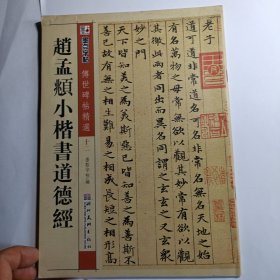 墨点字帖
傳世碑帖精選
趙孟頫小楷書道德經
老子
道可道非常道名可名非常名無名天地之始
有名萬物之母常無欲以觀其妙常有欲以觀
其徼此兩者同出而異名同謂之玄玄之又玄衆
妙之門
天下皆知美之為美斯惡已皆知善之為善斯
不善已故有無之相生難易之相成長短之相形高